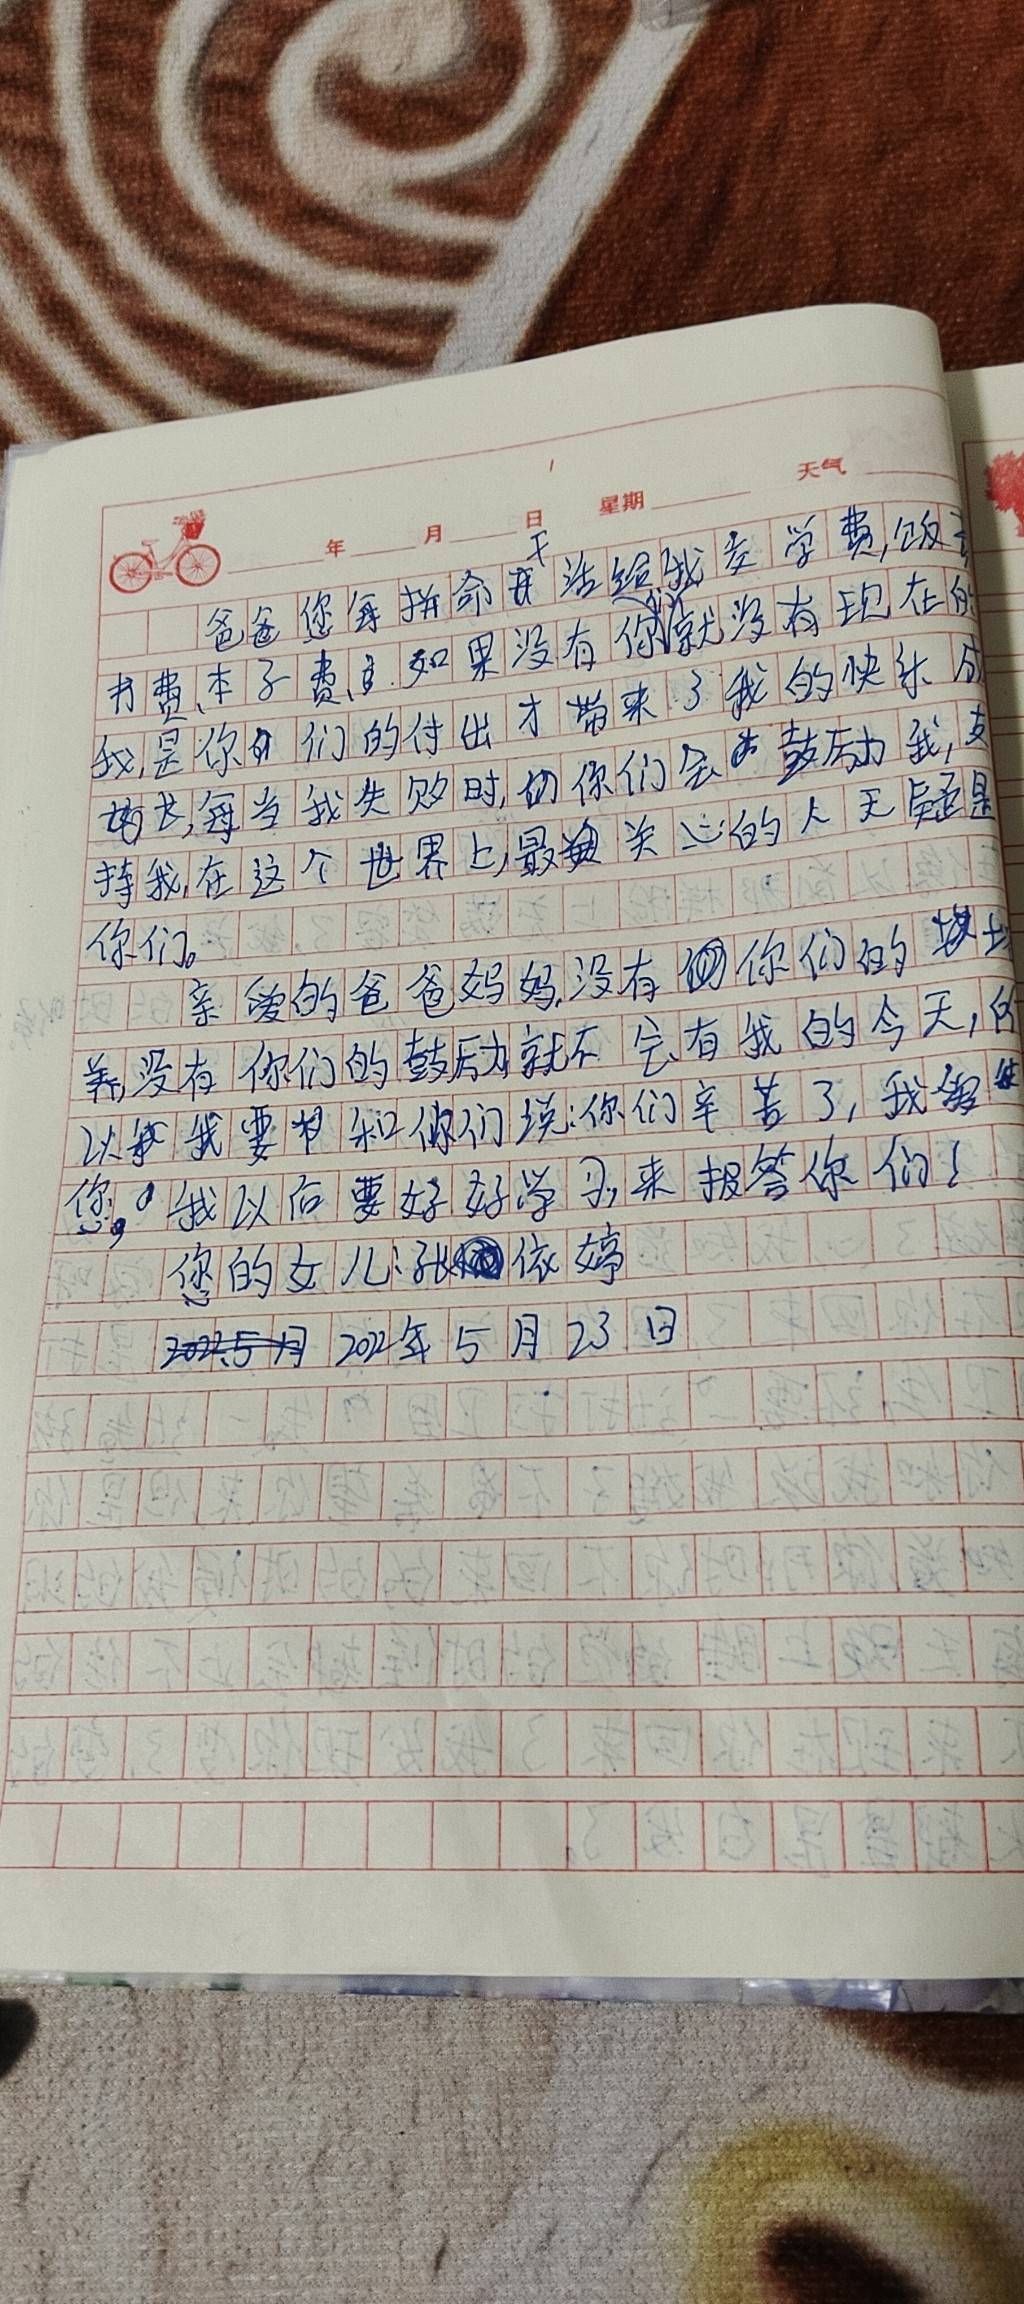 年 月 日 星期 天气
爸爸您每拼命干活给我交学费,饭
书费、本子费、如果没有你们就没有现在的
我,是你们的付出才带来了我的快乐成
长,每当我失败时,你们会鼓励我,支
持我,在这个世界上,最关心的人无疑是
你们。
亲爱的爸爸妈妈,没有你们的培
养,没有你们的鼓励就不会有我的今天,所
以我要和你们说:你们辛苦了,我爱
您。我以后要好好学习,来报答你们!
您的女儿:张依婷
2022年5月23日